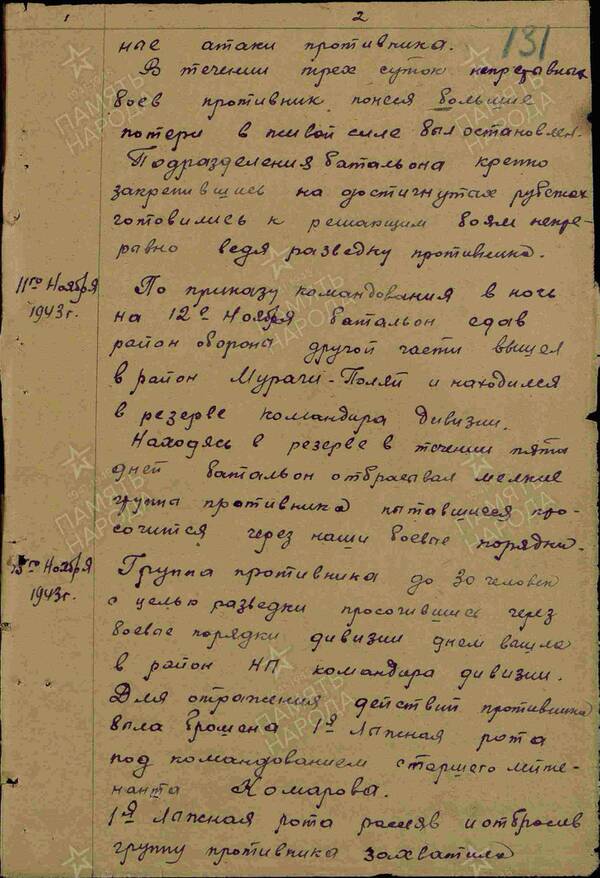 1 2
131
ные атаки противника.
В течении трех суток непрерывных
боев противник понеся большие
потери в живой силе был остановлен.
Подразделения батальона крепко
закрепившись на достигнутах рубежах
готовились к решающим боям непре-
равно ведя разведку противника.
11го Ноября
1943г.
По приказу командования в ночь
на 12е Ноября батальон сдав
район оборона другой части вышел
в район Мурачи-Поляй и находился
в резерве командира Дивизии.
Находясь в резерве в течении пяти
дней батальон отбрасывал мелкие
группа противника пытавшиеся про-
сочится через наши боевые порядки.
15го Ноября
1943г.
Группа противника до 30 человек
с целью разведки просочившись через
боевые порядки дивизии днем вышла
в район НП командира дивизии.
Для отражения действий противника
была брошена 1я Лыжная рота
под командованием старшего лейте-
нанта Комарова.
1я Лыжная рота рассеяв и отбросив
группу противника захватила
ПАМЯТЬ
НАРОДА